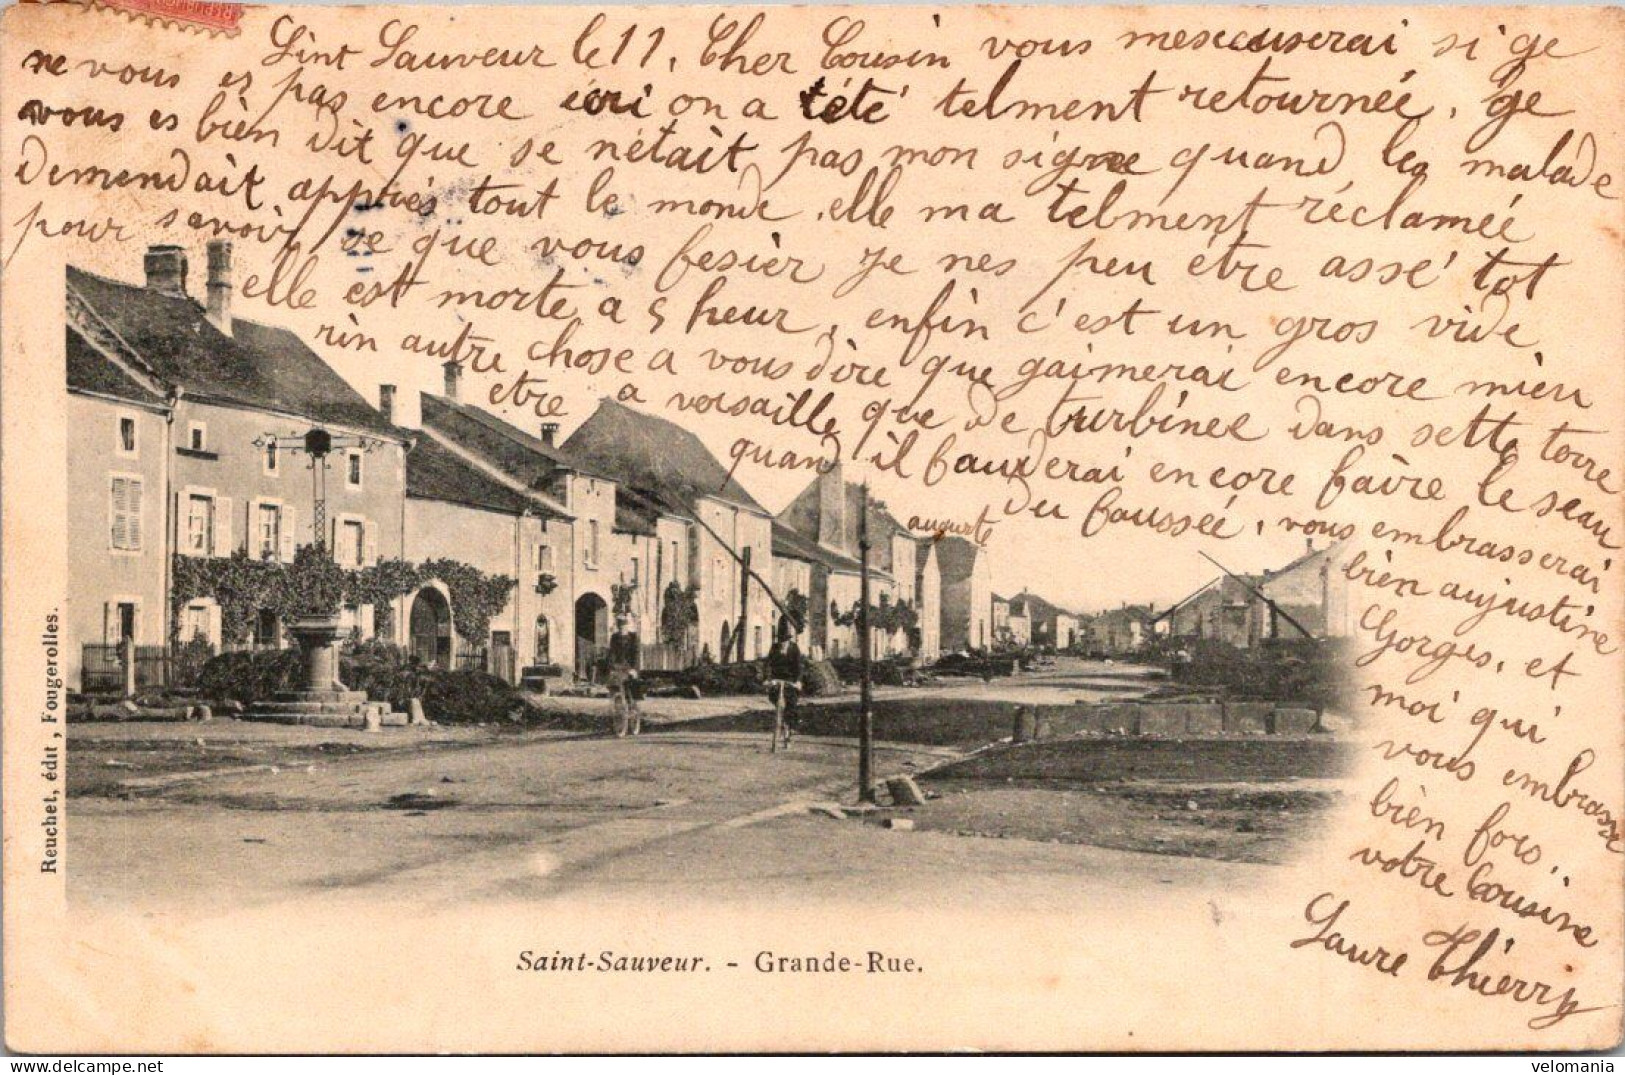 Sint Sauveur le 11, Cher Cousin vous mescuserai si ge
ne vous es pas encore écri on a tété telment retournée, ge
vous es bien dit que se nétait pas mon signe quand les malade
demendait apprés tout le monde, elle ma telment réclameé
pour savoir se que vous fesièr je nes peu etre assé tot
elle est morte a 5 heur, enfin c'est un gros vide
rin autre chose a vous dire que gaimerai encore mieu
etre a versaille que de turbinee dans sette terre
quand il fauderai encore faire le seau
du faussée, vous embrasserai
auguste
bien aujustine
Gorges, et
moi qui
vous embrasse
bien fors,
votre Cousine
Laure Thierry
Reuchet, édit, Fougerolles.
Saint-Sauveur. - Grande-Rue.
velomania